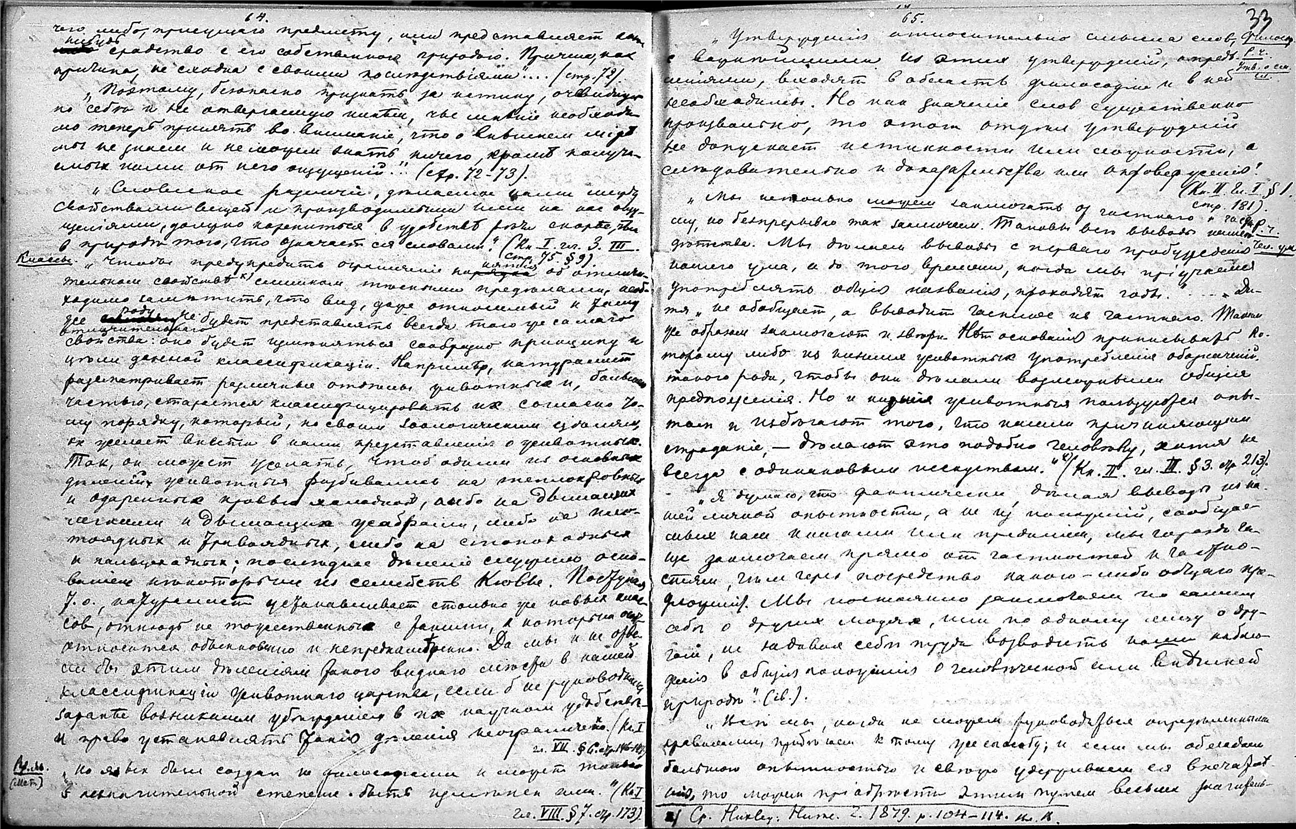 64.
чего либо, присущаго предмету, или представляет какое
нибудь сродство с его собственною природою. Причина, как
причина, не сходна с своими последствиями... (стр. 72).
"Поэтому, безопасно признать за истину, очевидную
по себе и не отвергаемую никем, чье мнение необходи-
мо теперь принять во внимание, что о внешнем мiре
мы не знаем и не можем знать ничего, кроме получа-
емых нами от него ощущенiй." (стр. 72-73).
"Словесное различiе, делаемое нами между
свойствами вещей и производимыми ими на нас ощу-
щенiями, должно корениться в удобстве речи скорее, чем
в природе того, что означается словами." (Кн I. гл. 3. III
стр. 75. § 9)
Классы.
"Чтобы предупредить ограниченiе понятiя об отличи-
тельном свойстве слишком тесными пределами, необ-
ходимо заметить, что вид, даже относимый к тому
же роду не будет представлять всегда того же самого
отличительного
свойства: оно будет изменяться сообразно принципу и
цели данной классификацiи. Например, натуралист
разсматривает различные отделы животных и, большею
частью, старается классифицировать их согласно то-
му порядку, который, по своим зоологическим целям, он
желает внести в наши представленiя о животных.
Так, он может желать, чтоб одним из основных
деленiй животныя разбивались на теплокровных
и одаренных кровью холодной, либо на дышащих
легкими и дышащих жабрами, либо на пло-
тоядных и травоядных, либо на стопоходных
и пальцеходных; последнее деленiе служило осно-
ванiем некоторым из семейств Кювье. Поступая
т. о., натуралист устанавливает столько же новых клас-
сов, отнюдь не тожественных с теми, к которым они
относятся обыкновенно и непреднамеренно. Да мы и не отве-
ли бы этим деленiям такого виднаго места в нашей
классификацiи животнаго царства, если б не руководились
заранее возникшим убежденiем в их научном удобстве
и право устанавливать такiя деленiя неограничено. (Кн I
гл. VII. § 6.
"Но язык был создан не философами и может только
в незначительной степени быть изменен ими." (Кн I
гл. VIII. § 7. стр. 173).
65.
33
"Утвержденiя относительно смысла слов,
с важнейшими из этих утвержденiй, опреде-
ленiями, входят в область философiи и в ней
необходимы. Но как значенiе слов существенно
произвольно, то этот отдел утвержденiй
не допускает истинности или ложности, а
следовательно и доказательства или опроверженiя."
(Кн. II. Гл. I. § 1.
стр. 181).
"Мы не только можем заключать от частнаго к част-
ному, но безпрерывно так заключаем. Таковы все выводы нашего
детства. Мы делаем выводы с перваго пробужденiя
нашего ума, а до того времени, когда мы прiучаемся
употреблять общiя названiя, проходят годы."... "Ди-
тя не обобщает а выводит частное из частнаго. Таким
же образом заключают и звери. Нет основанiя приписывать ко-
торому либо из низших животных употребленiе обозначенiй
такого рода, чтобы они делали возможными общiя
предложенiя. Но и низшiя животныя пользуются опы-
том и избегают того, что нашли причиняющим
страданiе, - делают это подобно человеку, хотя не
всегда с одинаковым искусством." (Кн. II. гл. III. § 3. стр 213).
"Я думаю, что фактически, делая выводы из на-
шей личной опытности, а не из положенiй, сообщае-
мых нам книгами или преданiем, мы гораздо ча-
ще заключаем прямо от частностей к частно-
стям, чем через посредство какого-либо общаго пре-
дложенiя. Мы постоянно заключаем по самим
себе о других людях, или по одному лицу о дру-
гом, не задавая себе труда возводить наши наблю-
денiя в общiя положенiя о человеческой или внешней
природе." (ib.).
мы, когда не можем руководиться определенными
правилами, прибегаем к тому же способу; и если мы обладаем
большою опытностью и удерживаем ея впечатле-
нiя, то можем прiобрести этим путем весьма
Ср. 1879. p. 104-114.